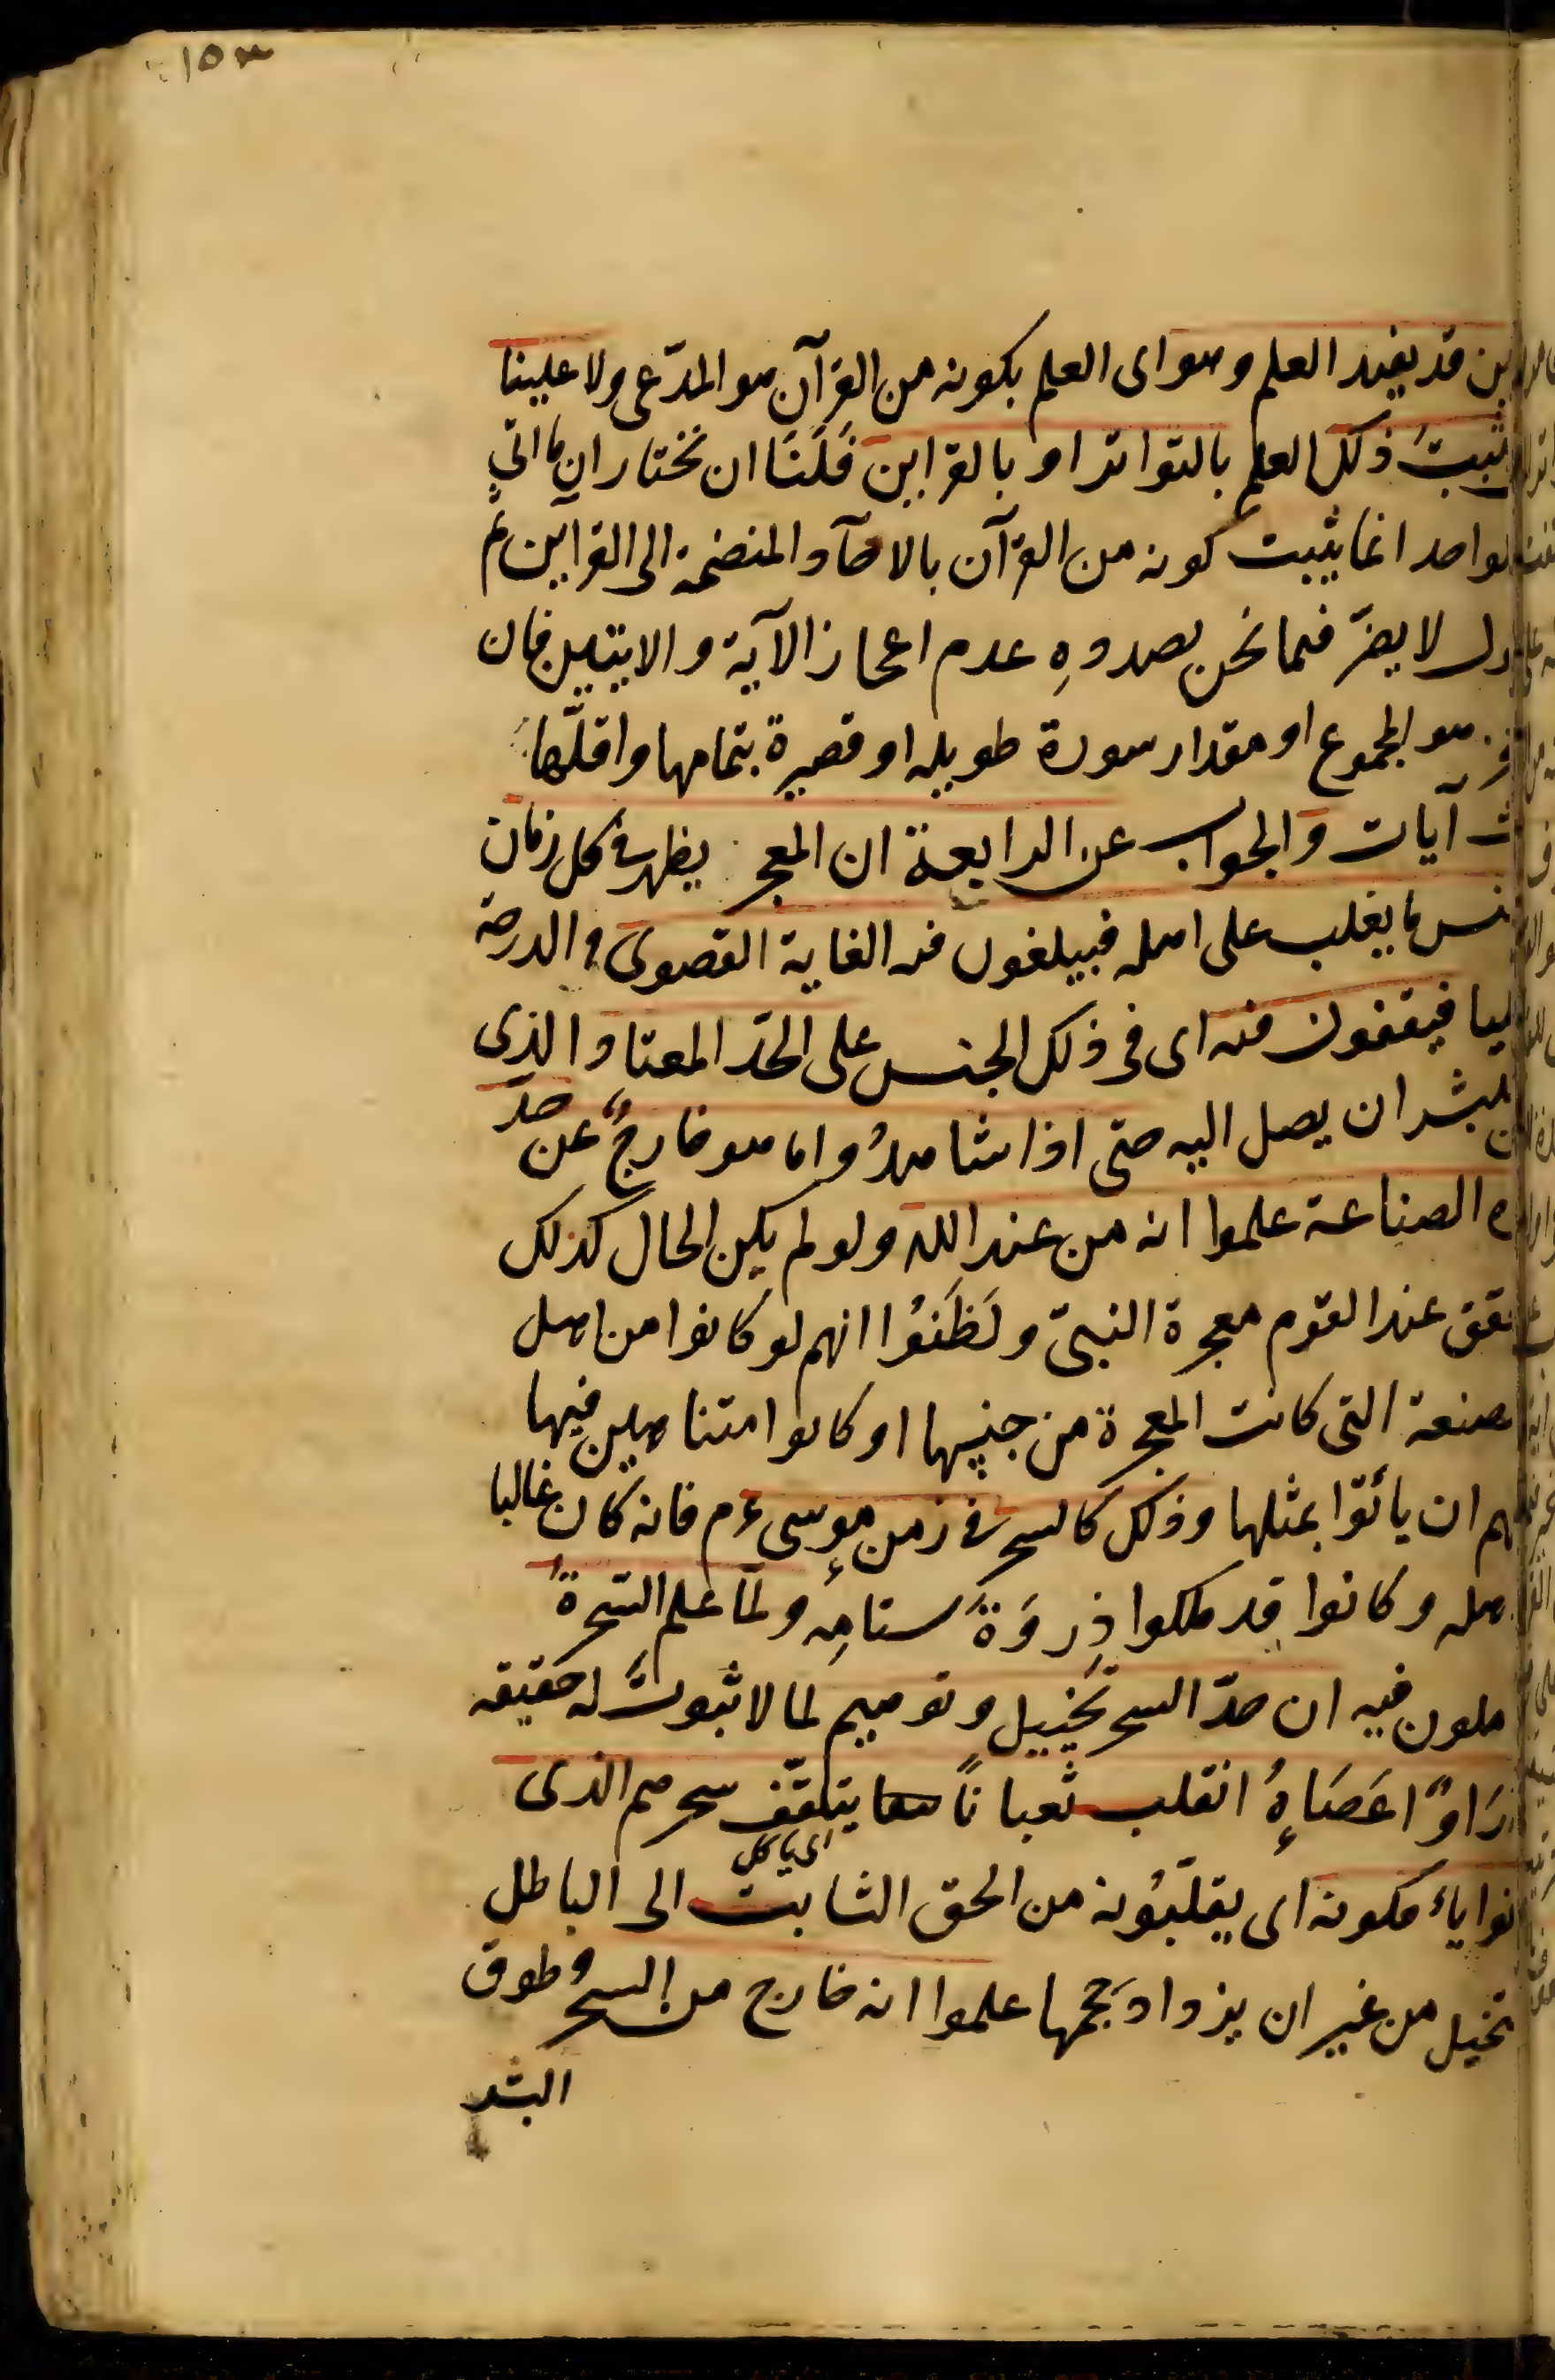 ١٥٣
قد يفيد العلم وهو اى العلم بكونه من القرآن هو المدّعى ولا علينا
ثبتَ ذلك العلم بالتواتر او بالقراين فَلَنَا ان نختار ان ما اتى
الواحد انما يثبت كونه من القرآن بالاحآد المنضمة الى القراين ثم
لا يضرّ فيما نحن بصدوهِ عدم اعجاز الآية والايتين فان
هو المجموع او مقدار سورة طويله او قصيرة بتمامها واقلّها
آيات والجواب عن الرابعة ان المعجز يظهر فى كل زمان
ما يغلب على اهله فيبلغون فيه الغاية القصوى والدرجة
فيقفون فيه اى فى ذلك الجنس على الحدّ المعتاد الذى
للبشر ان يصل اليه حتى اذا شاهدُوا ما هو خارجٌ عن حدّ
الصناعة علموا انه من عند الله ولو لم يكن الحال كذلك
عند القوم معجزة النبىّ ولَظَنوُا انهم لو كانوا من اهل
التى كانت المعجزة من جنسها او كانوا متناهين فيها
ان يأتوا بمثلها وذلك كالسحر فى زمن موسى ءم فانه كان غالبا
وكانوا قد ملكوا ذِروَةَ سنامِه ولمّا علم السّحرةُ
فيه ان حدّ السحر تخييل وتوهيم لما لا ثبوتَ له حقيقه
رَاوْا عَصَاهُ انقلب ثعباناً يتلقّف سحرهم الذى
اى ياكل
يأفكونه اى يقلّبُونه من الحق الثابت الى الباطل
من غير ان يزداد حجمها علموا انه خارج من السحر وطوق
البشر